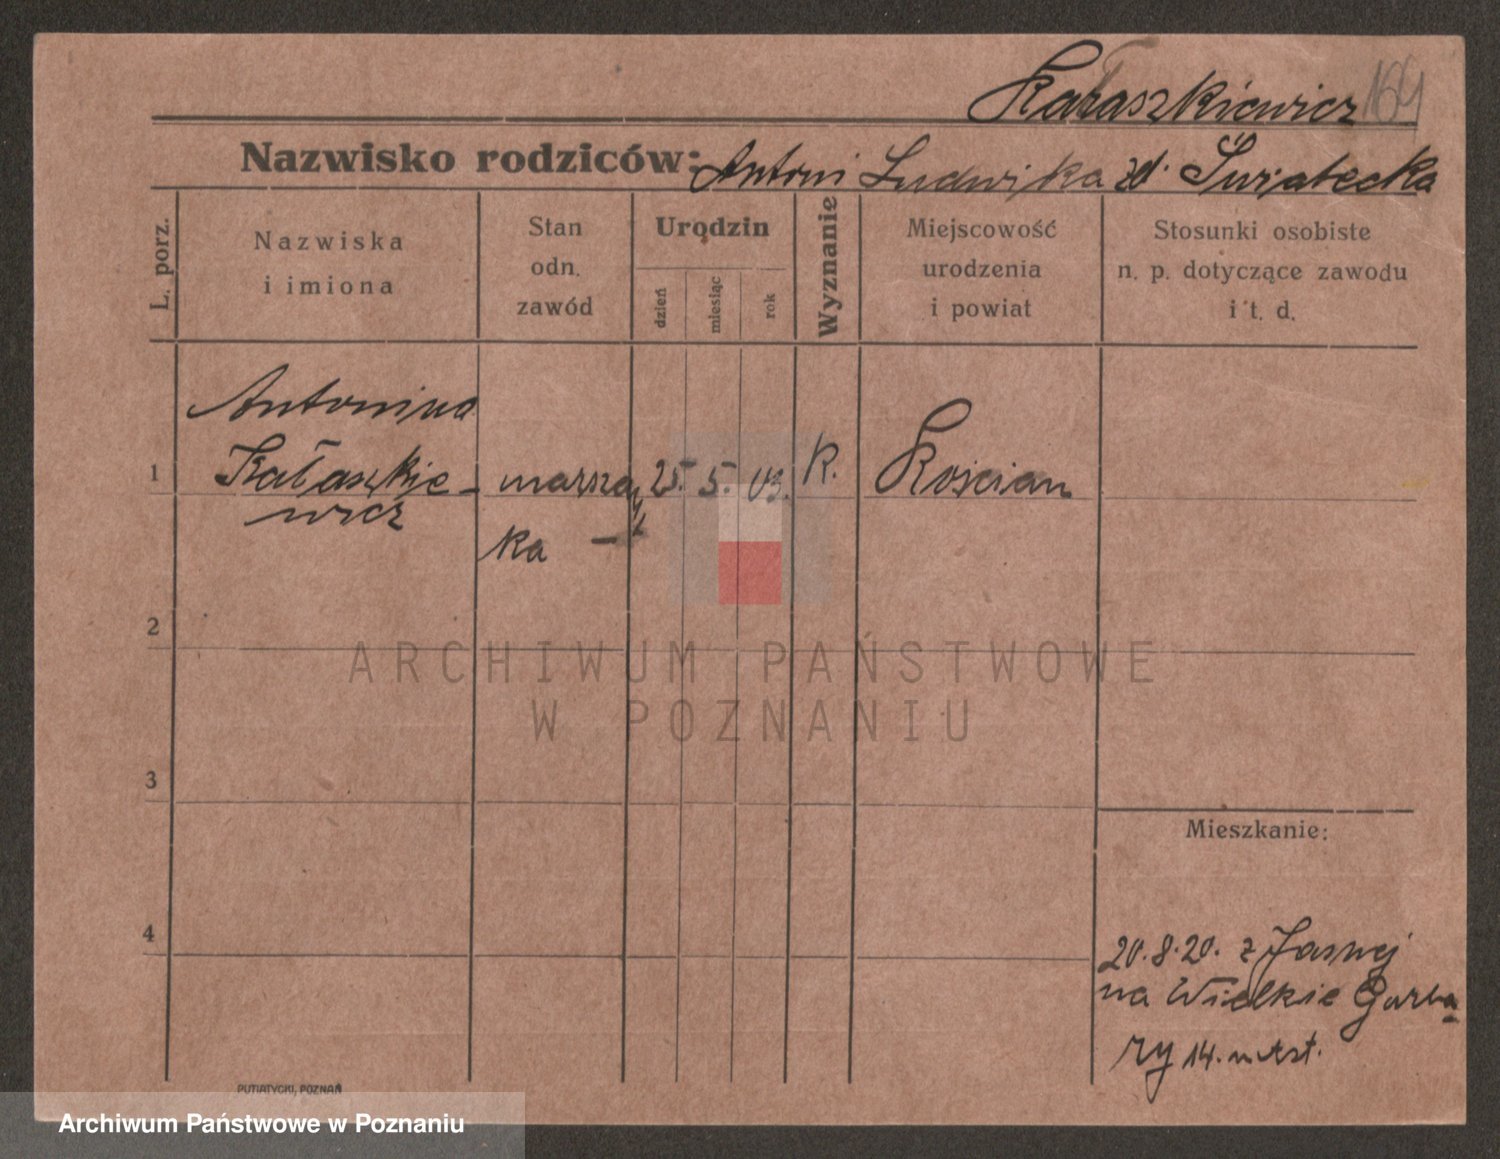 Kałaszkiewicz 164
Nazwisko rodziców: Antoni Ludwika zd. Świątecka
L. porz.
Nazwiska
i imiona
Stan
odn.
zawód
Urodzin
dzień
miesiąc
rok
Wyznanie
Miejscowość
urodzenia
i powiat
Stosunki osobiste
n. p. dotyczące zawodu
i t. d.
Antonina
1 Kałaszkie- marszan 25. 5. 03. R. Kościan
wicz
ka
2
ARCHIWUM PAŃSTWOWE
W POZNANIU
3
Mieszkanie:
4
20.8.20. z Jasnej
na Wielkie Garba-
ry 14.
PUTIATYCKI, POZNAŃ
Archiwum Państwowe w Poznaniu